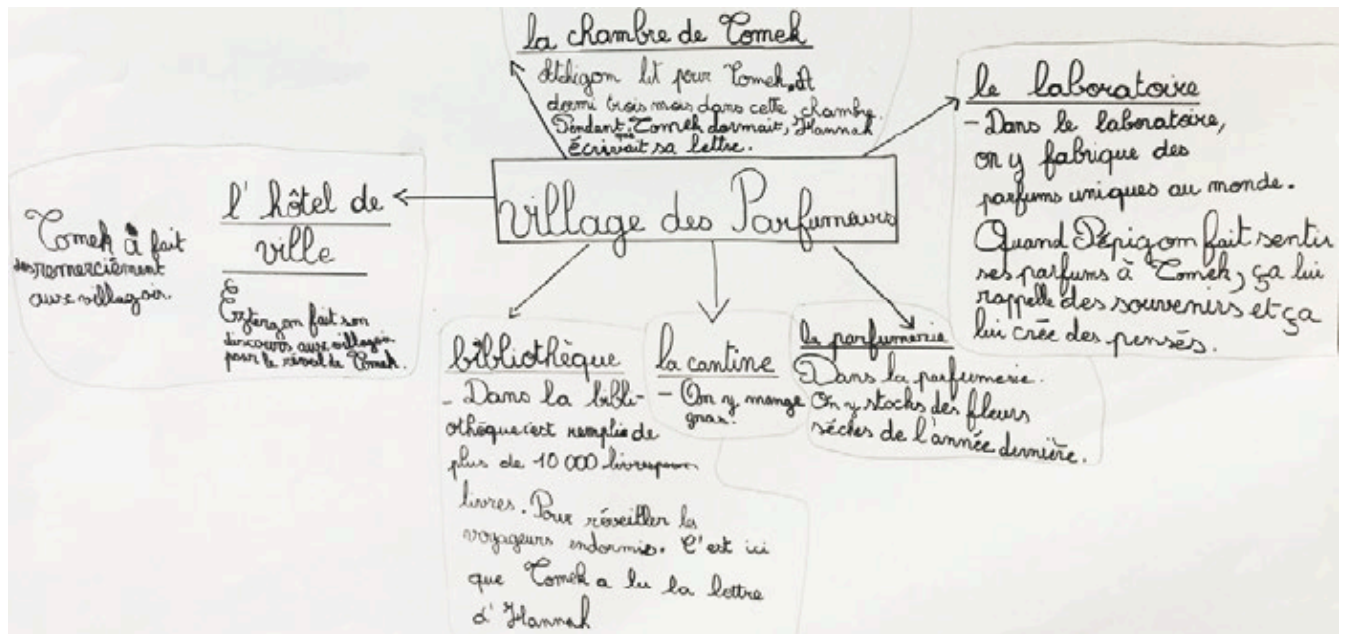 la chambre de Tomek
lit pour Tomek. A
dormi trois mois dans cette chambre.
Pendent que Tomek dormait, Hannah
écrivait sa lettre.
le laboratoire
- Dans le laboratoire,
on y fabrique des
parfums uniques au monde.
Quand Pépigom fait sentir
ses parfums à Tomek, ça lui
rappelle des souvenirs et ça
lui crée des pensés.
village des Parfumeurs
l'hôtel de
ville
Tomek à fait
des remerciément
aux villagoir.
Eztergom fait son
discours aux villagoir
pour le réveil de Tomek.
bibliothèque
- Dans la bibli-
othèque c'est remplie de
plus de 10 000 livres pour
livres. Pour réveiller les
voyageurs endormis. C'est ici
que Tomek a lu la lettre
d'Hannah
la cantine
- On y mange
gras.
la parfumerie
Dans la parfumerie.
On y stocks des fleurs
séches de l'année dernière.